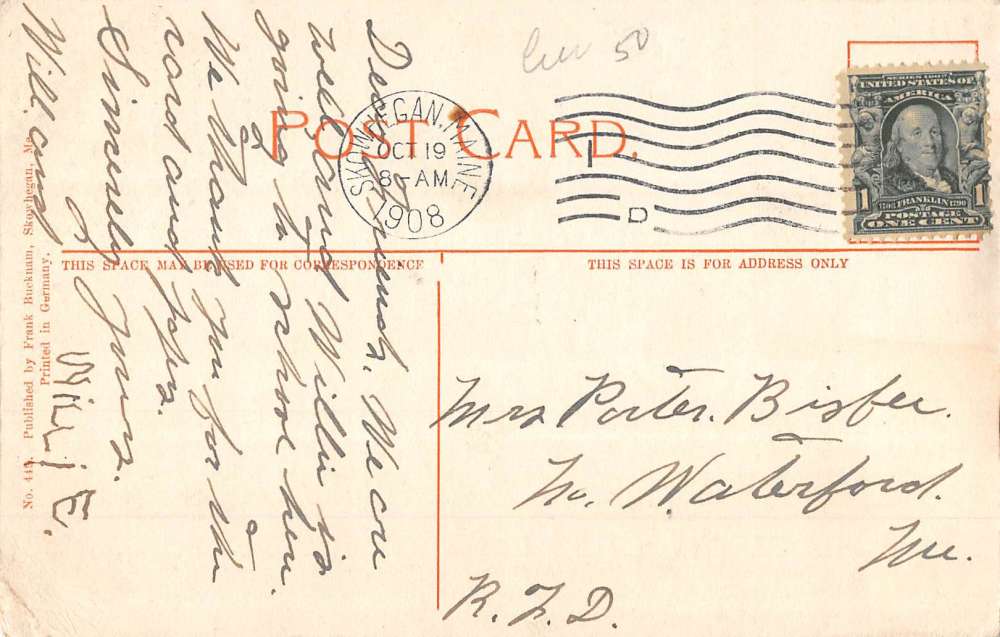 POST CARD.
Cur 50
SKOWHEGAN, MAINE
OCT 19
8-AM
1908
D
SERIES 1902
UNITED STATES OF
AMERICA
1 FRANKLIN 1790 1
POSTAGE
ONE CENT
THIS SPACE MAY BE USED FOR CORRESPONDENCE
THIS SPACE IS FOR ADDRESS ONLY
Dear Friend, We are
well and Willie is
going to school here.
We thank you for the
card and papers.
Sincerely Yours.
Will and
WiLLiE.
Mrs Porter. Bisbee.
No. Waterford.
Me.
R. F. D.
No. 449. Published by Frank Bucknam, Skowhegan, Me.
Printed in Germany.